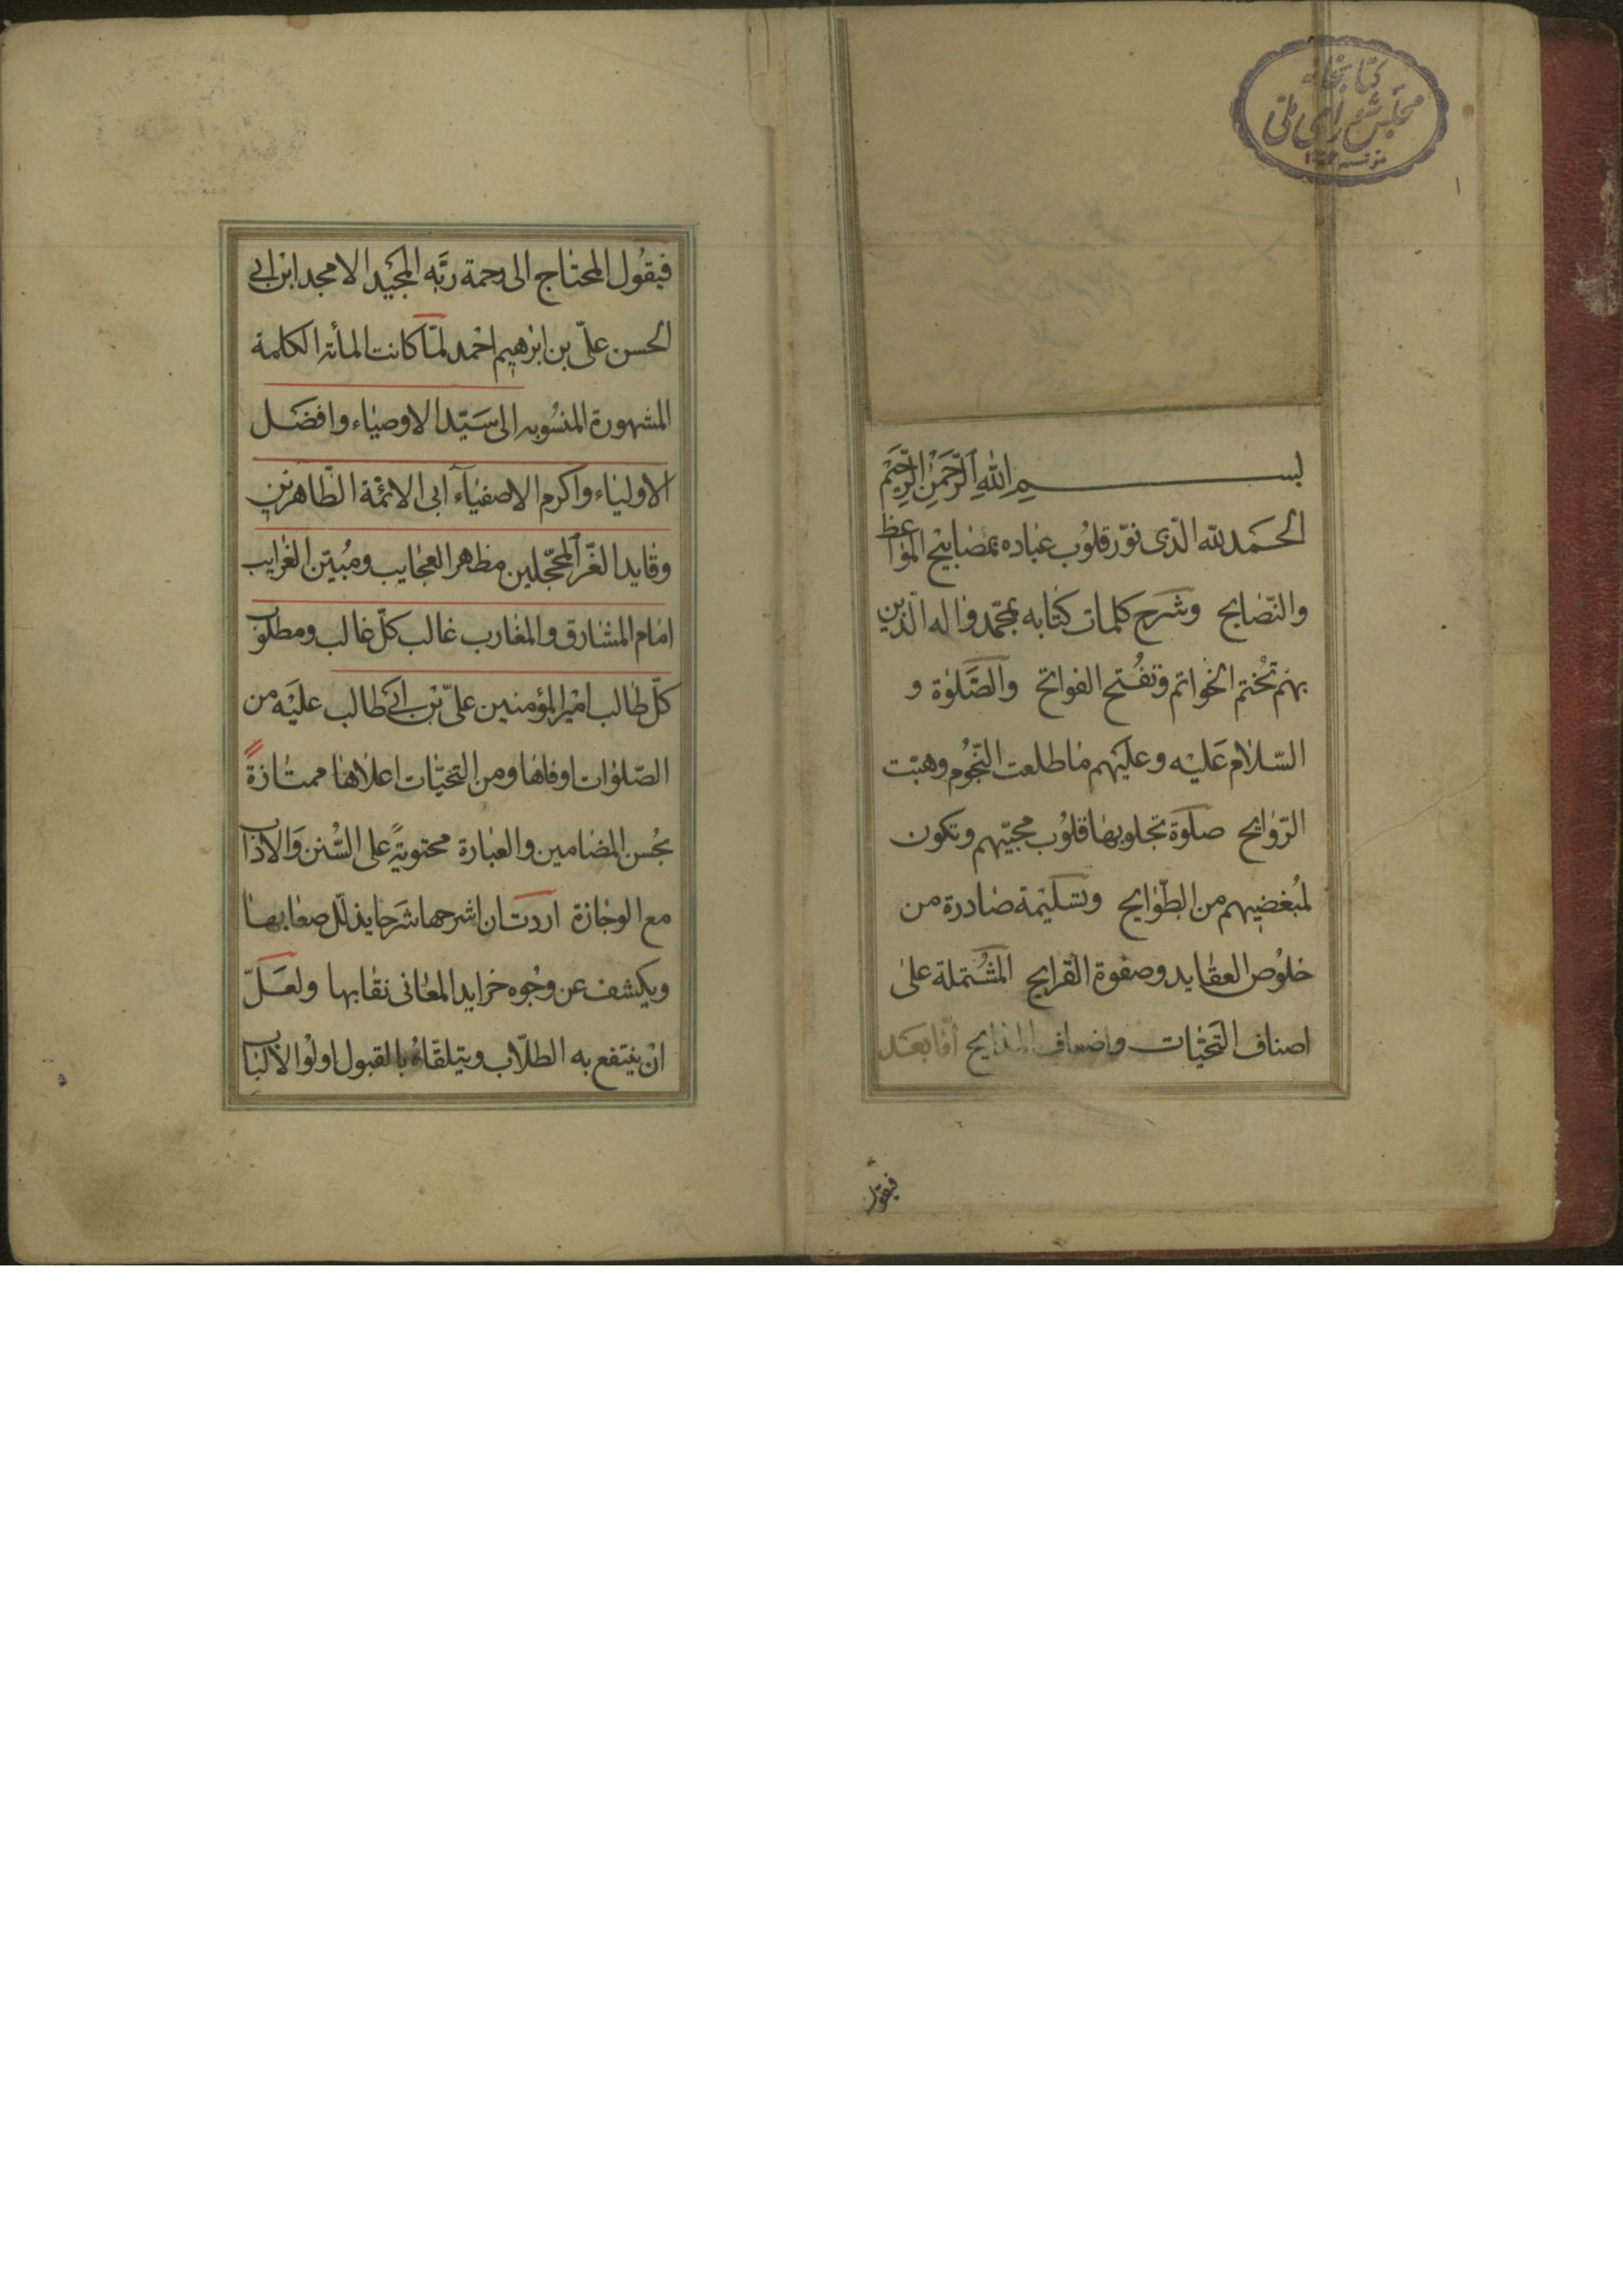 کتابخانه
مجلس شورای ملی
بسم الله الرَّحمن الرَّحیم
الحَمَد لله الّذی نوّر قلوُب عباده بمصابیْح المواعظ
والنّصایح وشَرح کلمات کتابه بمحّمد واله الّذین
بهم تُختم الخواتم وتفُتح الفواتح والصَّلوٰة و
السّلام عَلیْه وعلیَهم ما طلعت النّجُوم وهبّت
الرّوایح صلوة تجلو بها قلوُب محبّیهم وتکون
لمُبغضِیهم من الطّوایح وتسَلیْمة صادرة من
خلوُص العقاید وصفوة القرایح المشُتملة علیٰ
اصناف التَحیّات واضعاف المدایح امّا بعَد
فیقول
فیقوُل المحتاج الی رحمة ربَّه المجَیْد الامجد ابن ابی
الحسن علیّ بن ابرٰهیم احْمد لمّا کانت المأئة الکلمة
المشهورة المنسُوبه الی سَیّد الاوصیاء وافضَل
الاولیاء واکرم الاصفیآء ابی الائمّة الطّاهرین
وقاید الغّر المحجّلین مظهر العجایب ومُبیّن الغرایب
امام المشارق والمغارب غالب کلّ غالب ومطلوب
کلّ طالب امیْر المؤمنین علیّ بْن ابی طالب علیْه من
الصّلوات اوفاها ومن التحیّات اعلاها ممتازةً
بحُسن المضامین والعبارة محتویةً علی السُّنن وَالاداب
مع الوجازة اردت ان اشرحها شَرحا یذلّل صعابها
ویکشف عن وجُوه خراید المعانی نقابها ولعَلّ
انْ ینتفع به الطلاّب ویتلقّاهُ بالقبول اولوْا الالباب